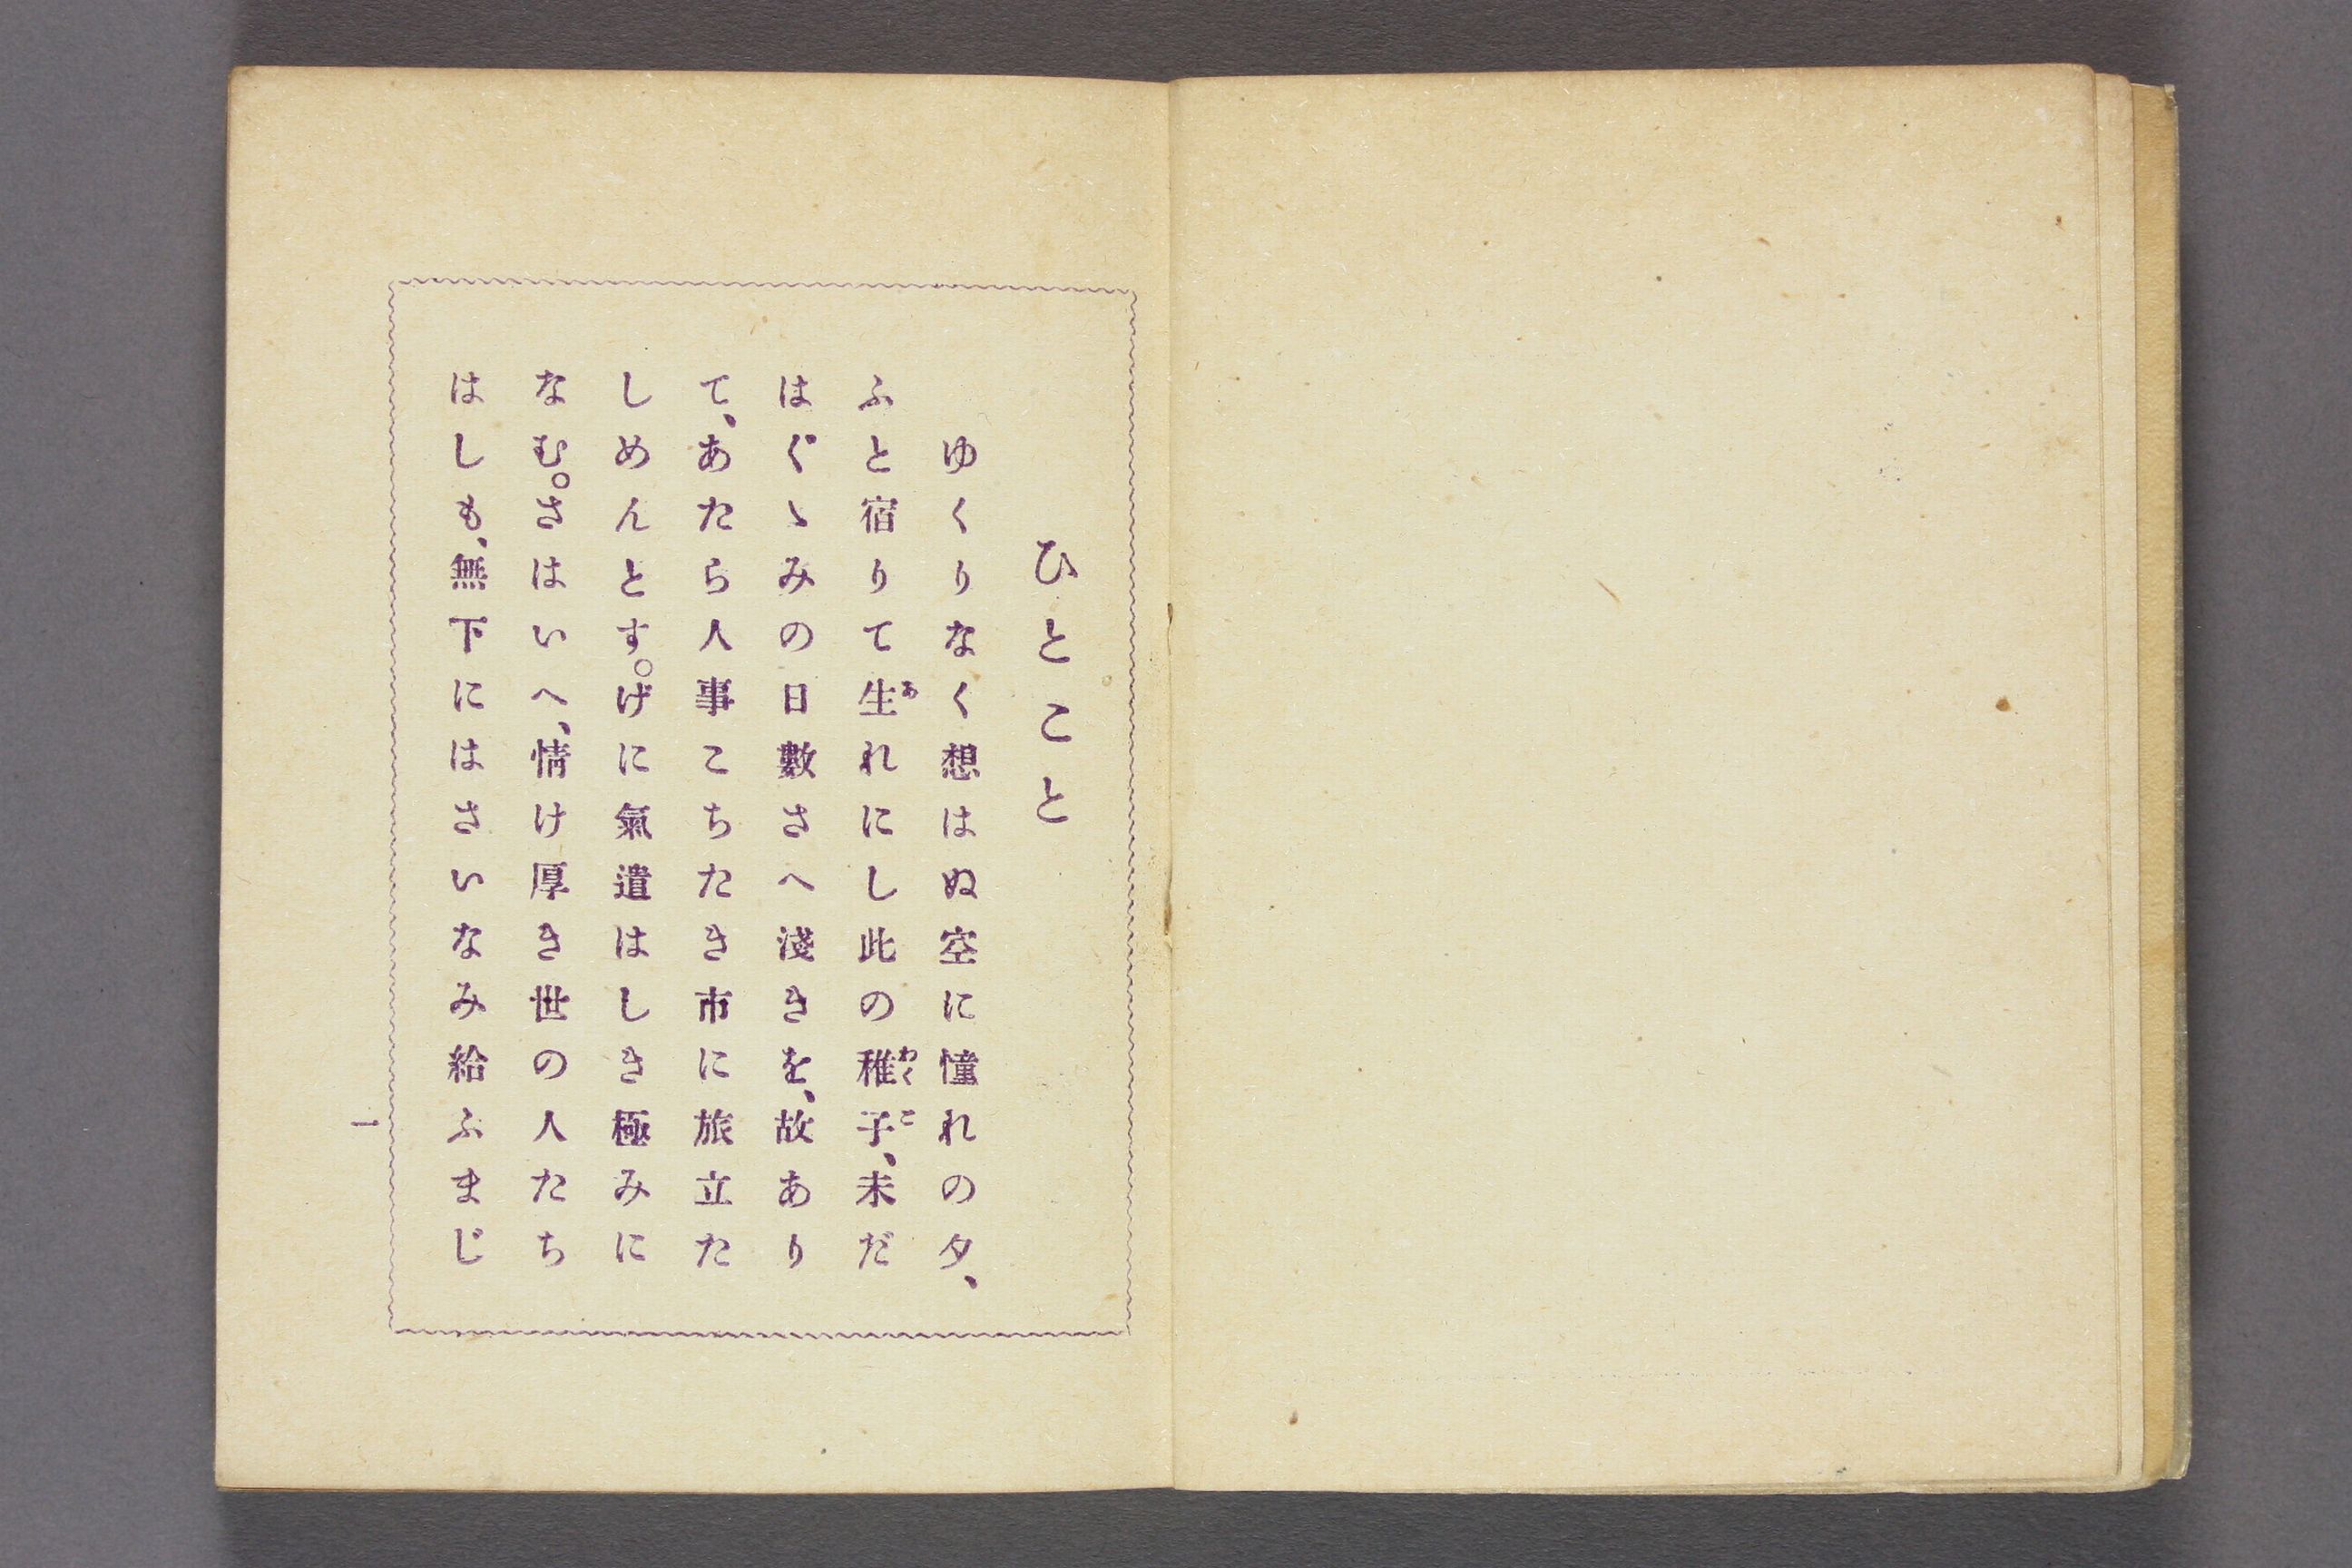 ひとこと
ゆくりなく想はぬ空に憧れの夕、
ふと宿りて生れにし此の稚子、未だ
はぐゝみの日數さへ淺きを、故あり
て、あたら人事こちたき市に旅立た
しめんとす。げに氣遣はしき極みに
なむ。さはいへ、情け厚き世の人たち
はしも、無下にはさいなみ給ふまじ
一